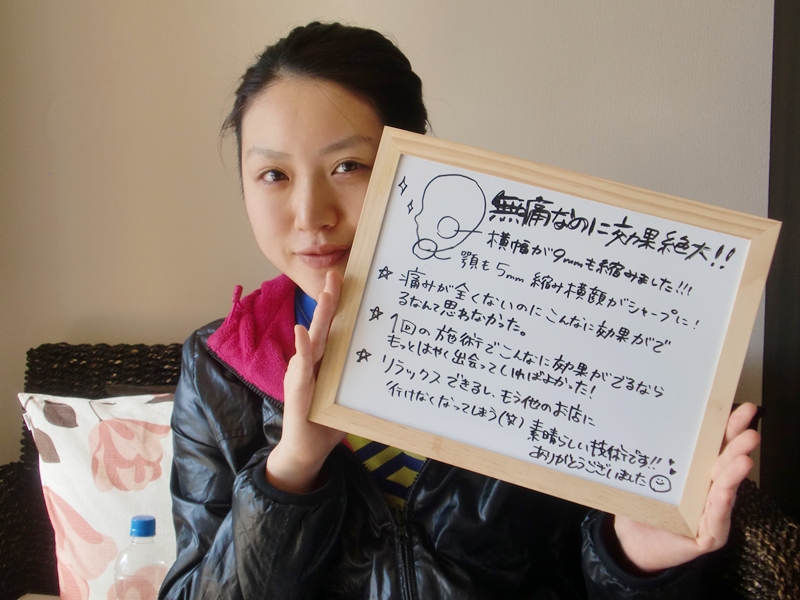 無痛なのに効果絶大!!
横幅が9mmも縮みました!!!
顎も5mm縮み横顔がシャープに!
☆ 痛みが全くないのにこんなに効果がで
るなんて思わなかった。
☆ 1回の施術でこんなに効果がでるなら
もっとはやく出会っていればよかった!
☆ リラックスできるし、もう他のお店に
行けなくなってしまう(笑) 素晴らしい技術です!!
ありがとうございました